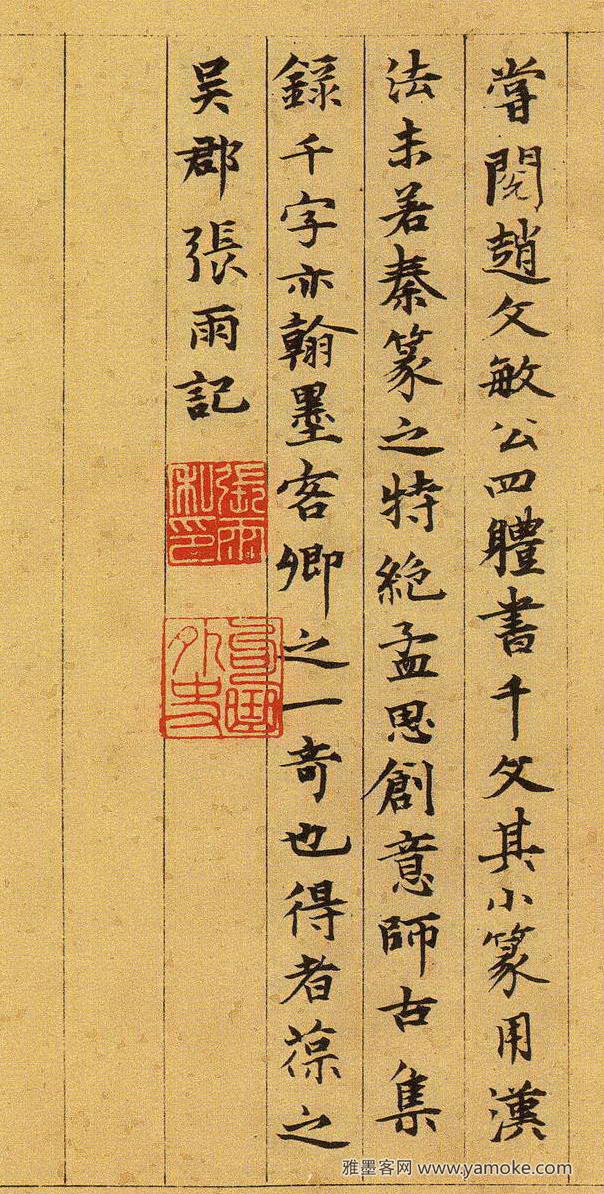 嘗閱趙文敏公四體書千文其小篆用漢
法未若秦篆之特絕孟思創意師古集
錄千字亦翰墨客卿之一奇也得者葆之
吳郡張雨記
張雨私印
句曲外史
雅墨客网 www.yamoke.com